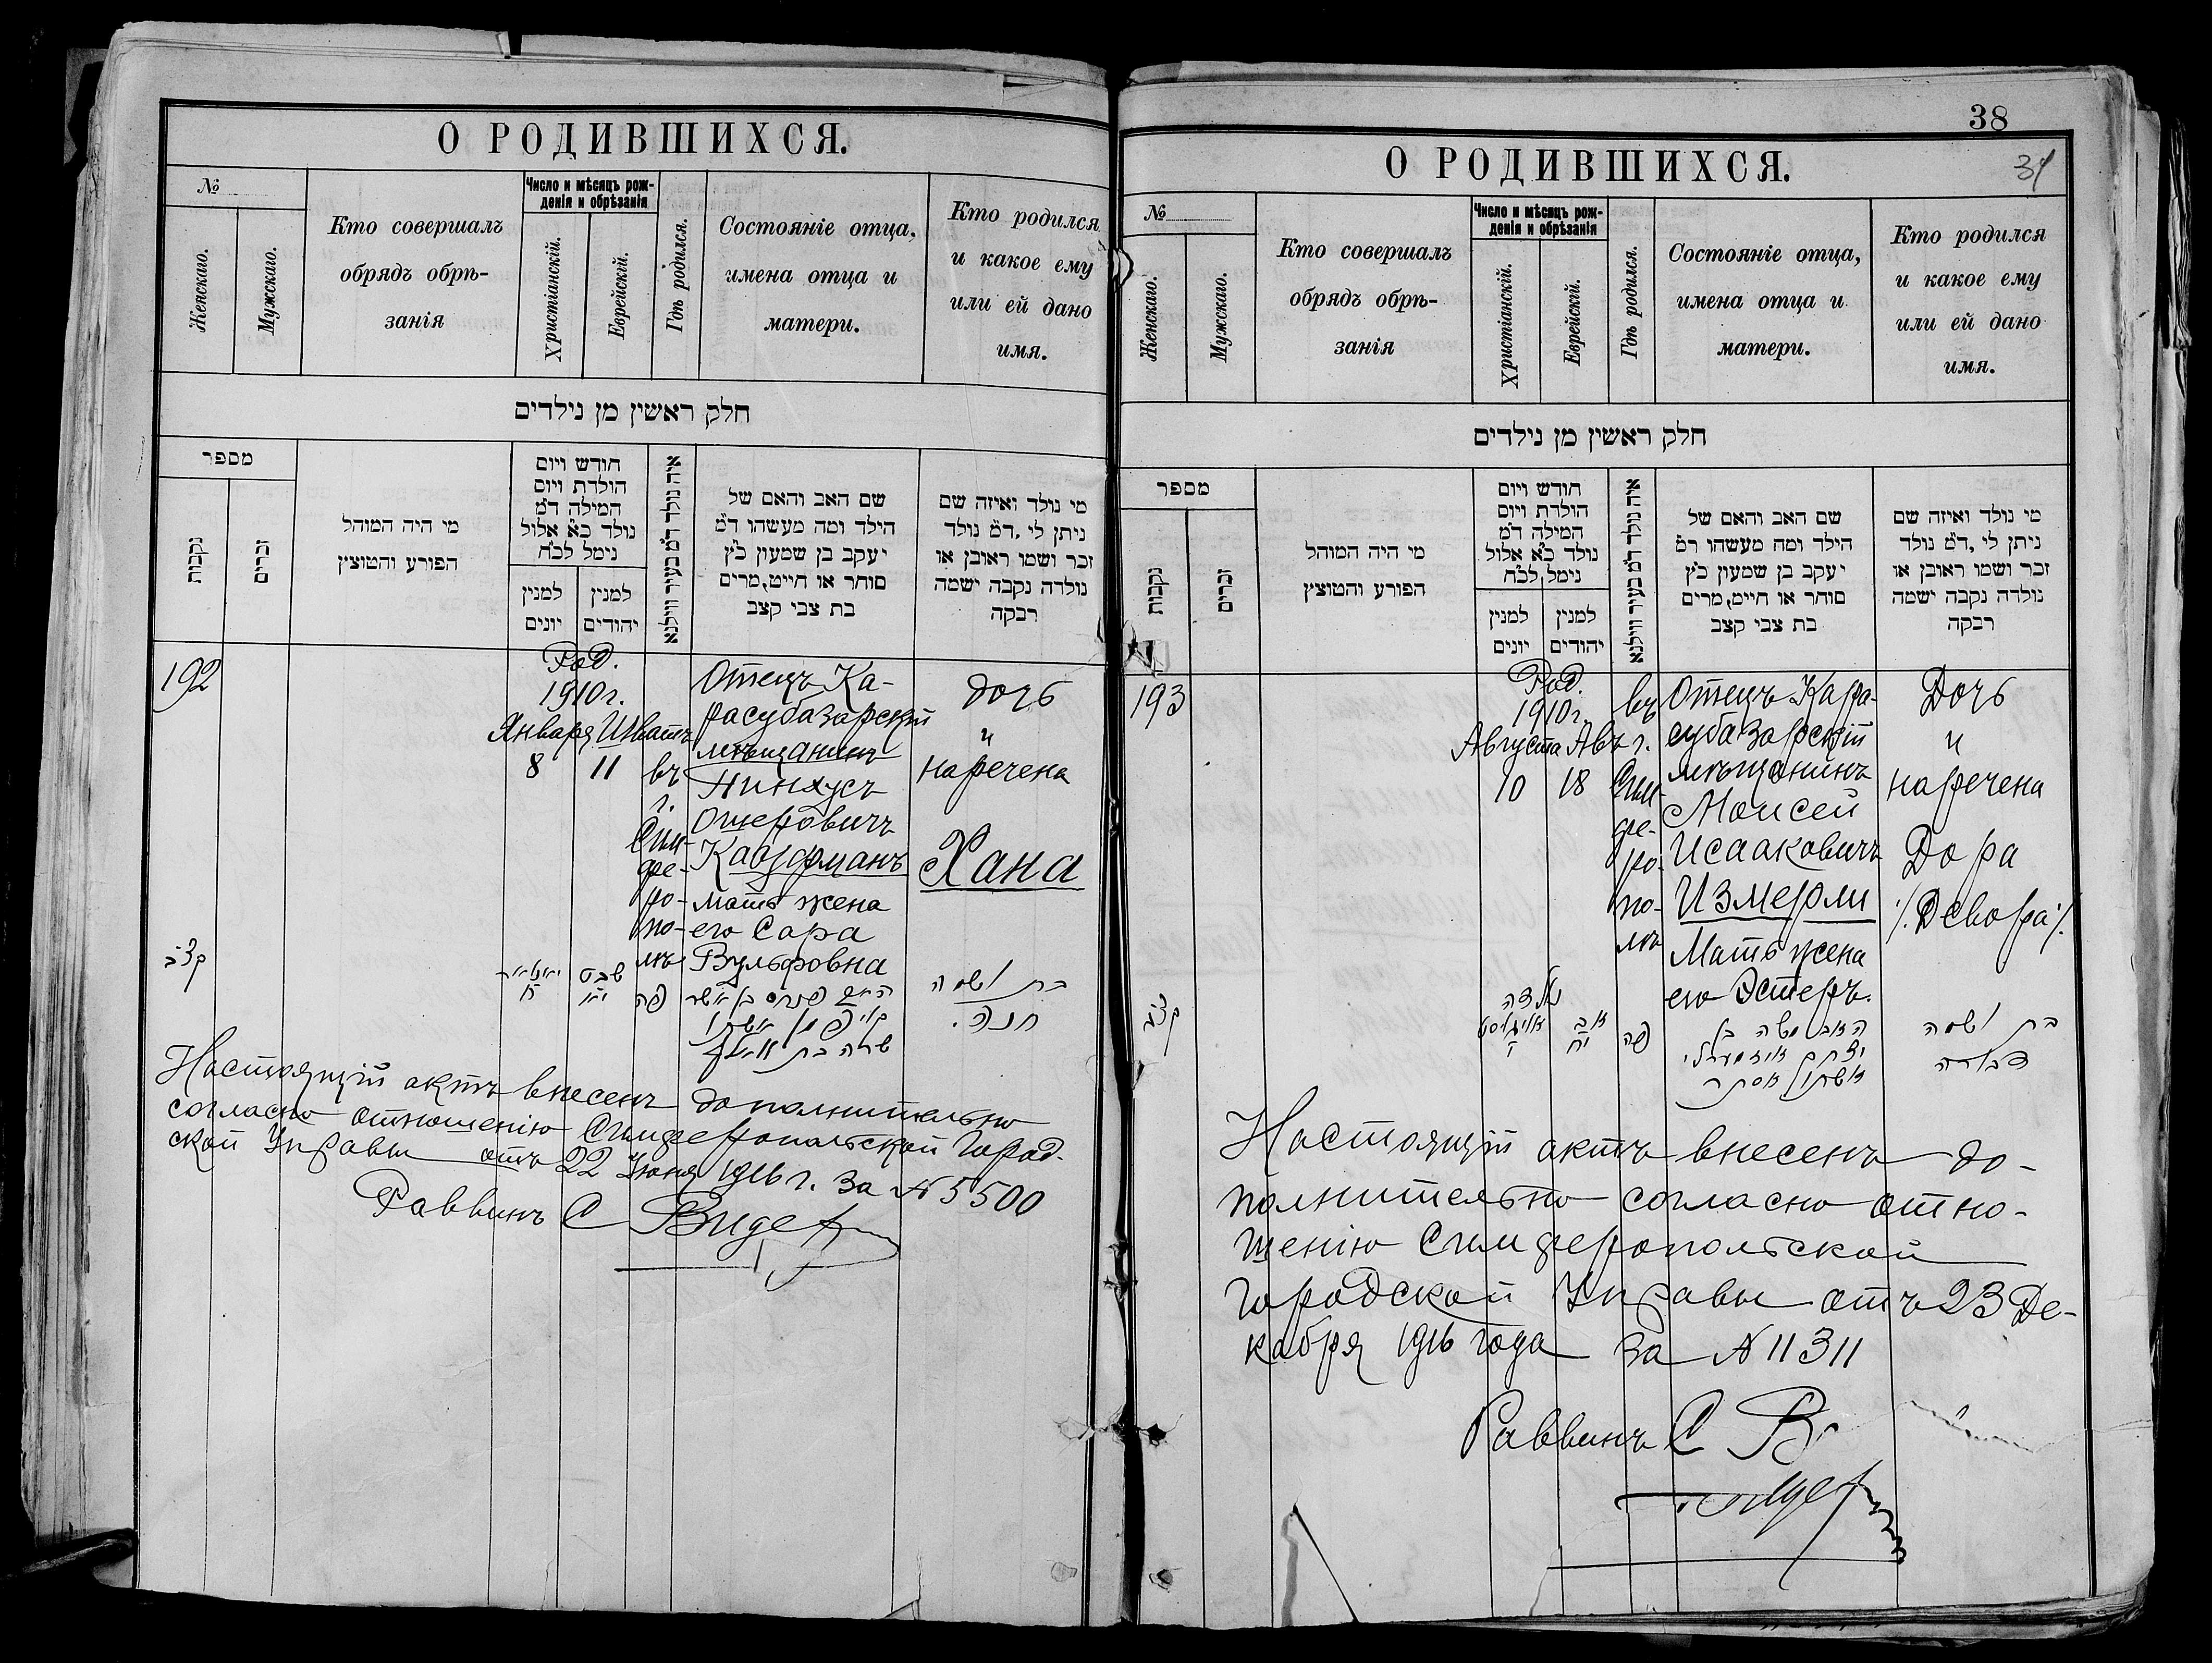 О РОДИВШИХСЯ.
№
Женскаго.
Мужскаго.
Кто совершалъ
обрядъ обрѣ-
занія
Число и мѣсяцъ рож-
денія и обрѣзанія
Христіанскій.
Еврейскій.
Гдѣ родился.
Состояніе отца,
имена отца и
матери.
Кто родился
и какое ему
или ей дано
имя.
חלק ראשין מן נילדים
מספר
נקבות
זכרים
מי היה המוהל
הפורע והמוצץ
חודש ויום
הולדת ויום
המילה ד״מ
נולד כ״א אלול
נימל לכ״ח
למנין
יונים
למנין
יהודים
איה נולד ד״מ בעיר ווילנא
שם האב והאם של
הילד ומה מעשהו ד״מ
יעקב בן שמעון כ״ץ
סוחר או חייט, מרים
בת צבי קצב
מי נולד ואיזה שם
ניתן לי, ד״מ נולד
זכר ושמו ראובן או
נולדה נקבה ישמה
רבקה
192
Род.
1910 г.
Января Шватъ
8 11
въ
г.
Сим-
фе-
ро-
по-
лѣ
Отецъ Ка-
расубазарскій
мѣщанинъ
Пинхусъ
Ошеровичъ
Кауфманъ
Мать жена
его Сара
Вульфовна
дочь
и
наречена
Хана
קצב
שבט
פה
בת ושמה
חנה.
Настоящій актъ внесенъ дополнительно
согласно отношенію Симферопольской Город-
ской Управы отъ 22 Іюня 1916 г. за № 5500
Раввинъ С Видер
38
О РОДИВШИХСЯ.
№
Женскаго.
Мужскаго.
Кто совершалъ
обрядъ обрѣ-
занія
Число и мѣсяцъ рож-
денія и обрѣзанія
Христіанскій.
Еврейскій.
Гдѣ родился.
Состояніе отца,
имена отца и
матери.
Кто родился
и какое ему
или ей дано
имя.
חלק ראשין מן נילדים
מספר
נקבות
זכרים
מי היה המוהל
הפורע והמוצץ
חודש ויום
הולדת ויום
המילה ד״מ
נולד כ״א אלול
נימל לכ״ח
למנין
יונים
למנין
יהודים
איה נולד ד״מ בעיר ווילנא
שם האב והאם של
הילד ומה מעשהו ד״מ
יעקב בן שמעון כ״ץ
סוחר או חייט, מרים
בת צבי קצב
מי נולד ואיזה שם
ניתן לי, ד״מ נולד
זכר ושמו ראובן או
נולדה נקבה ישמה
רבקה
193
Род.
1910 г.
Августа Авъ
10 18
въ
г.
Сим-
фе-
ро-
по-
лѣ
Отецъ Кара-
субазарскій
мѣщанинъ
Моисей
Исааковичъ
Измерли
Мать жена
его Эстеръ.
Дочь
и
наречена
Дора
/Девора/
קצג
נולדה
אויגוסט
י
אב
יח
פה
האב משה בן
יצחק איזמערלי
אשתו אסתר
בת ושמה
דבורה
Настоящій актъ внесенъ до-
полнительно согласно отно-
шенію Симферопольской
Городской Управы отъ 23 Де-
кабря 1916 года за № 11311
Раввинъ С В